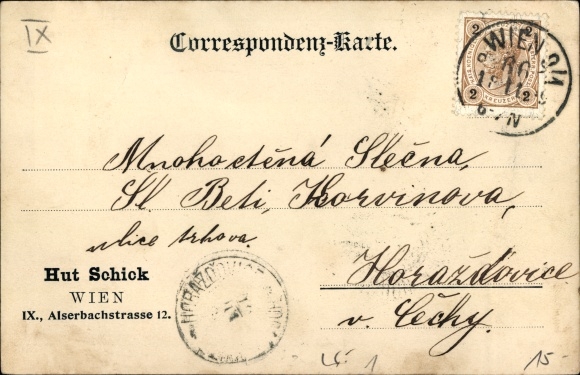 IX
Correspondenz-Karte.
2 2
2 2
WIEN
Mnohoctěná Slečna,
Sl. Beti, Korvinova,
ulice trhova.
Horažďovice
v Čechy.
Hut Schick
WIEN
IX., Alserbachstrasse 12.
HORAŽDOVICE
1
15-